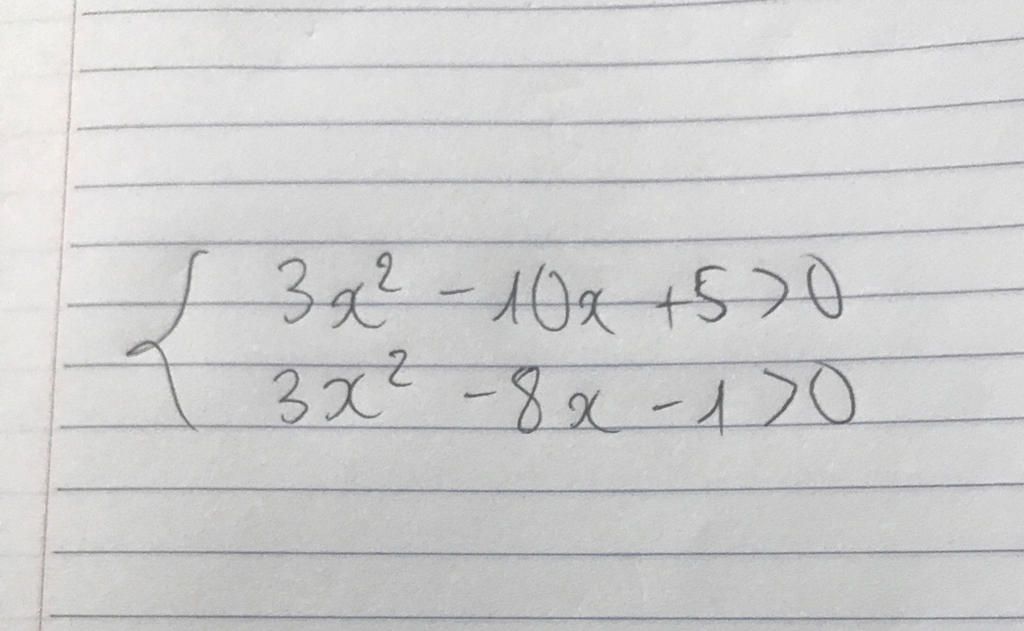 3x² - 10x + 5 > 0
3x² - 8x - 1 > 0